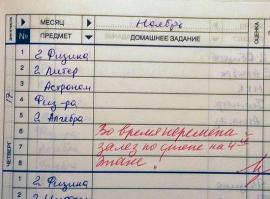 МЕСЯЦ Ноябрь
№ ПРЕДМЕТ ДОМАШНЕЕ ЗАДАНИЕ ОЦЕНКА
1 2. Физика
2 2. Литер
3 Астроном
4 Физ-ра
5 2. Алгебра
6 Во время перемены
7 залез по стене на 4-й
8 этаж.
17
ЧЕТВЕРГ
1 2. Физика
2